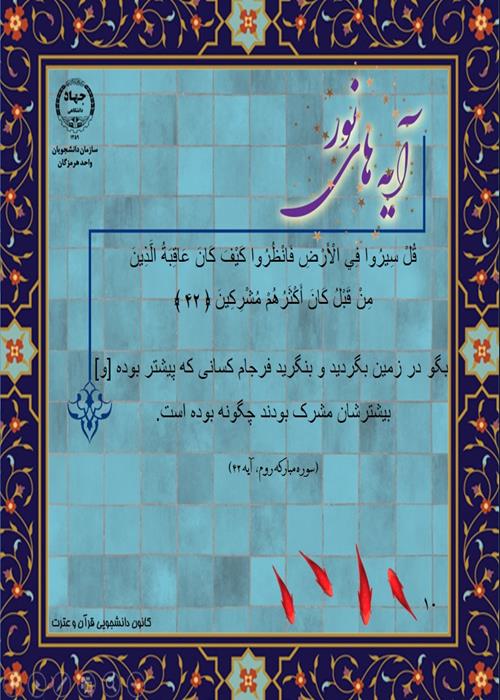 جهاد
دانشگاهی
۱۳۵۹
سازمان دانشجویان
واحد هرمزگان
آیه های نور
قُلْ سِیرُوا فِي الْأَرْضِ فَانْظُرُوا كَیْفَ كَانَ عَاقِبَةُ الَّذِینَ
مِنْ قَبْلُ كَانَ أَكْثَرُهُمْ مُشْرِكِینَ ﴿۴۲﴾
بگو در زمین بگردید و بنگرید فرجام کسانی که پیشتر بوده [و]
بیشترشان مشرک بودند چگونه بوده است.
(سوره مبارکه روم، آیه ۴۲)
۱۰
کانون دانشجویی قرآن و عترت